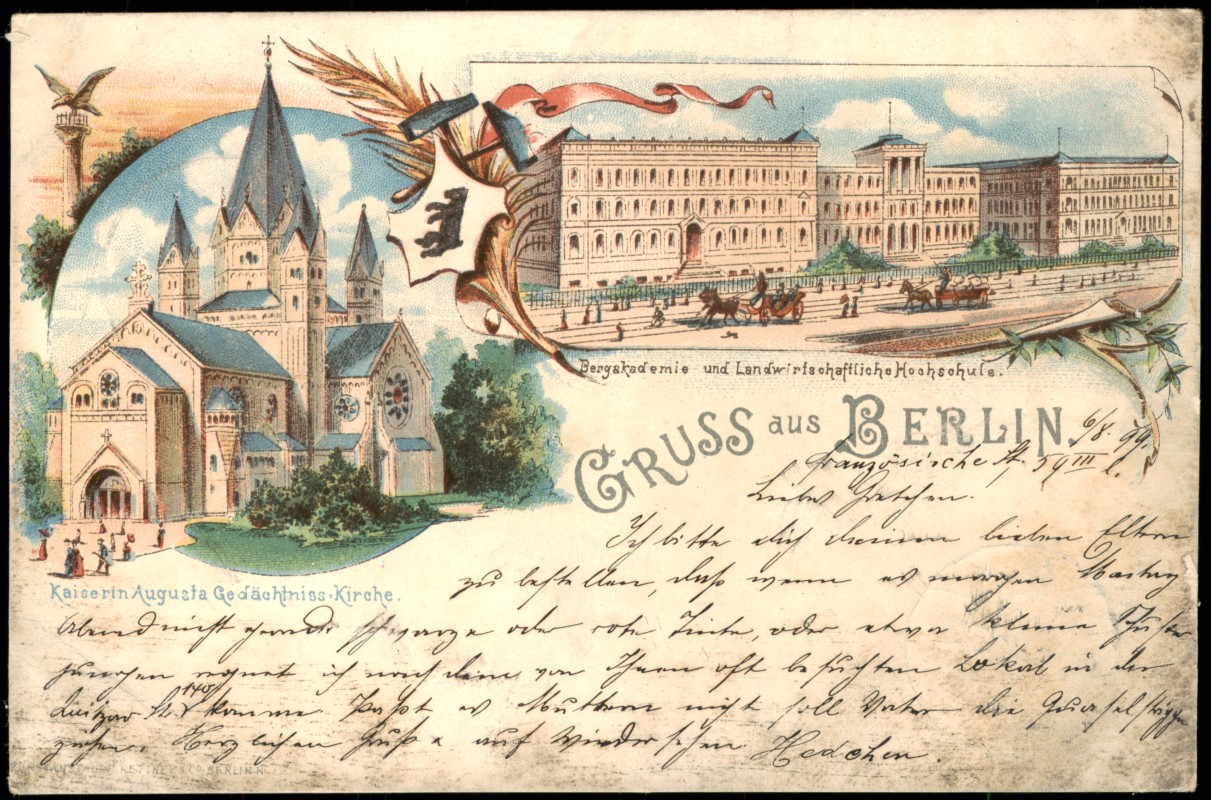 Bergakademie und Landwirtschaftliche Hochschule.
GRUSS aus BERLIN
6/8. 99.
Französische St. 59 III l.
Liebes Gretchen.
Ich bitte dich deinen lieben Eltern
zu bestellen, daß wenn es morgen
Kaiserin Augusta Gedächtniss-Kirche.
Abend nicht gerade schwarze oder rote Tinte, oder etwa kleine
jungen regnet ich nach dem von Ihnen oft besuchten Lokal in der
St. 140 komme. Paßt es Muttern nicht soll Vater die
ziehen. Herzlichen Gruß auf Wiedersehen Hedchen.
BERLIN N.